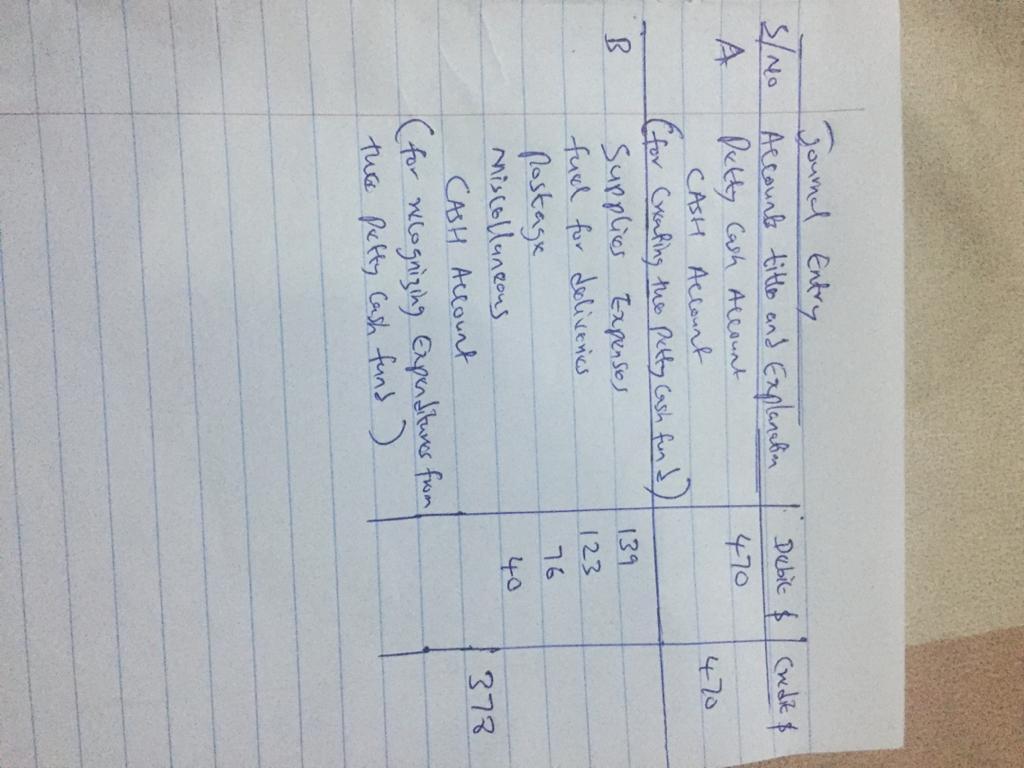 Journal Entry
S/No Accounts title and Explanation Debit $ Credit $
A Petty Cash Account 470
CASH Account 470
(for Creating the Petty Cash fund)
B Supplies Expenses 139
fuel for deliveries 123
Postage 76
Miscellaneous 40
CASH Account 378
(for recognizing Expenditures from
the Petty Cash fund)